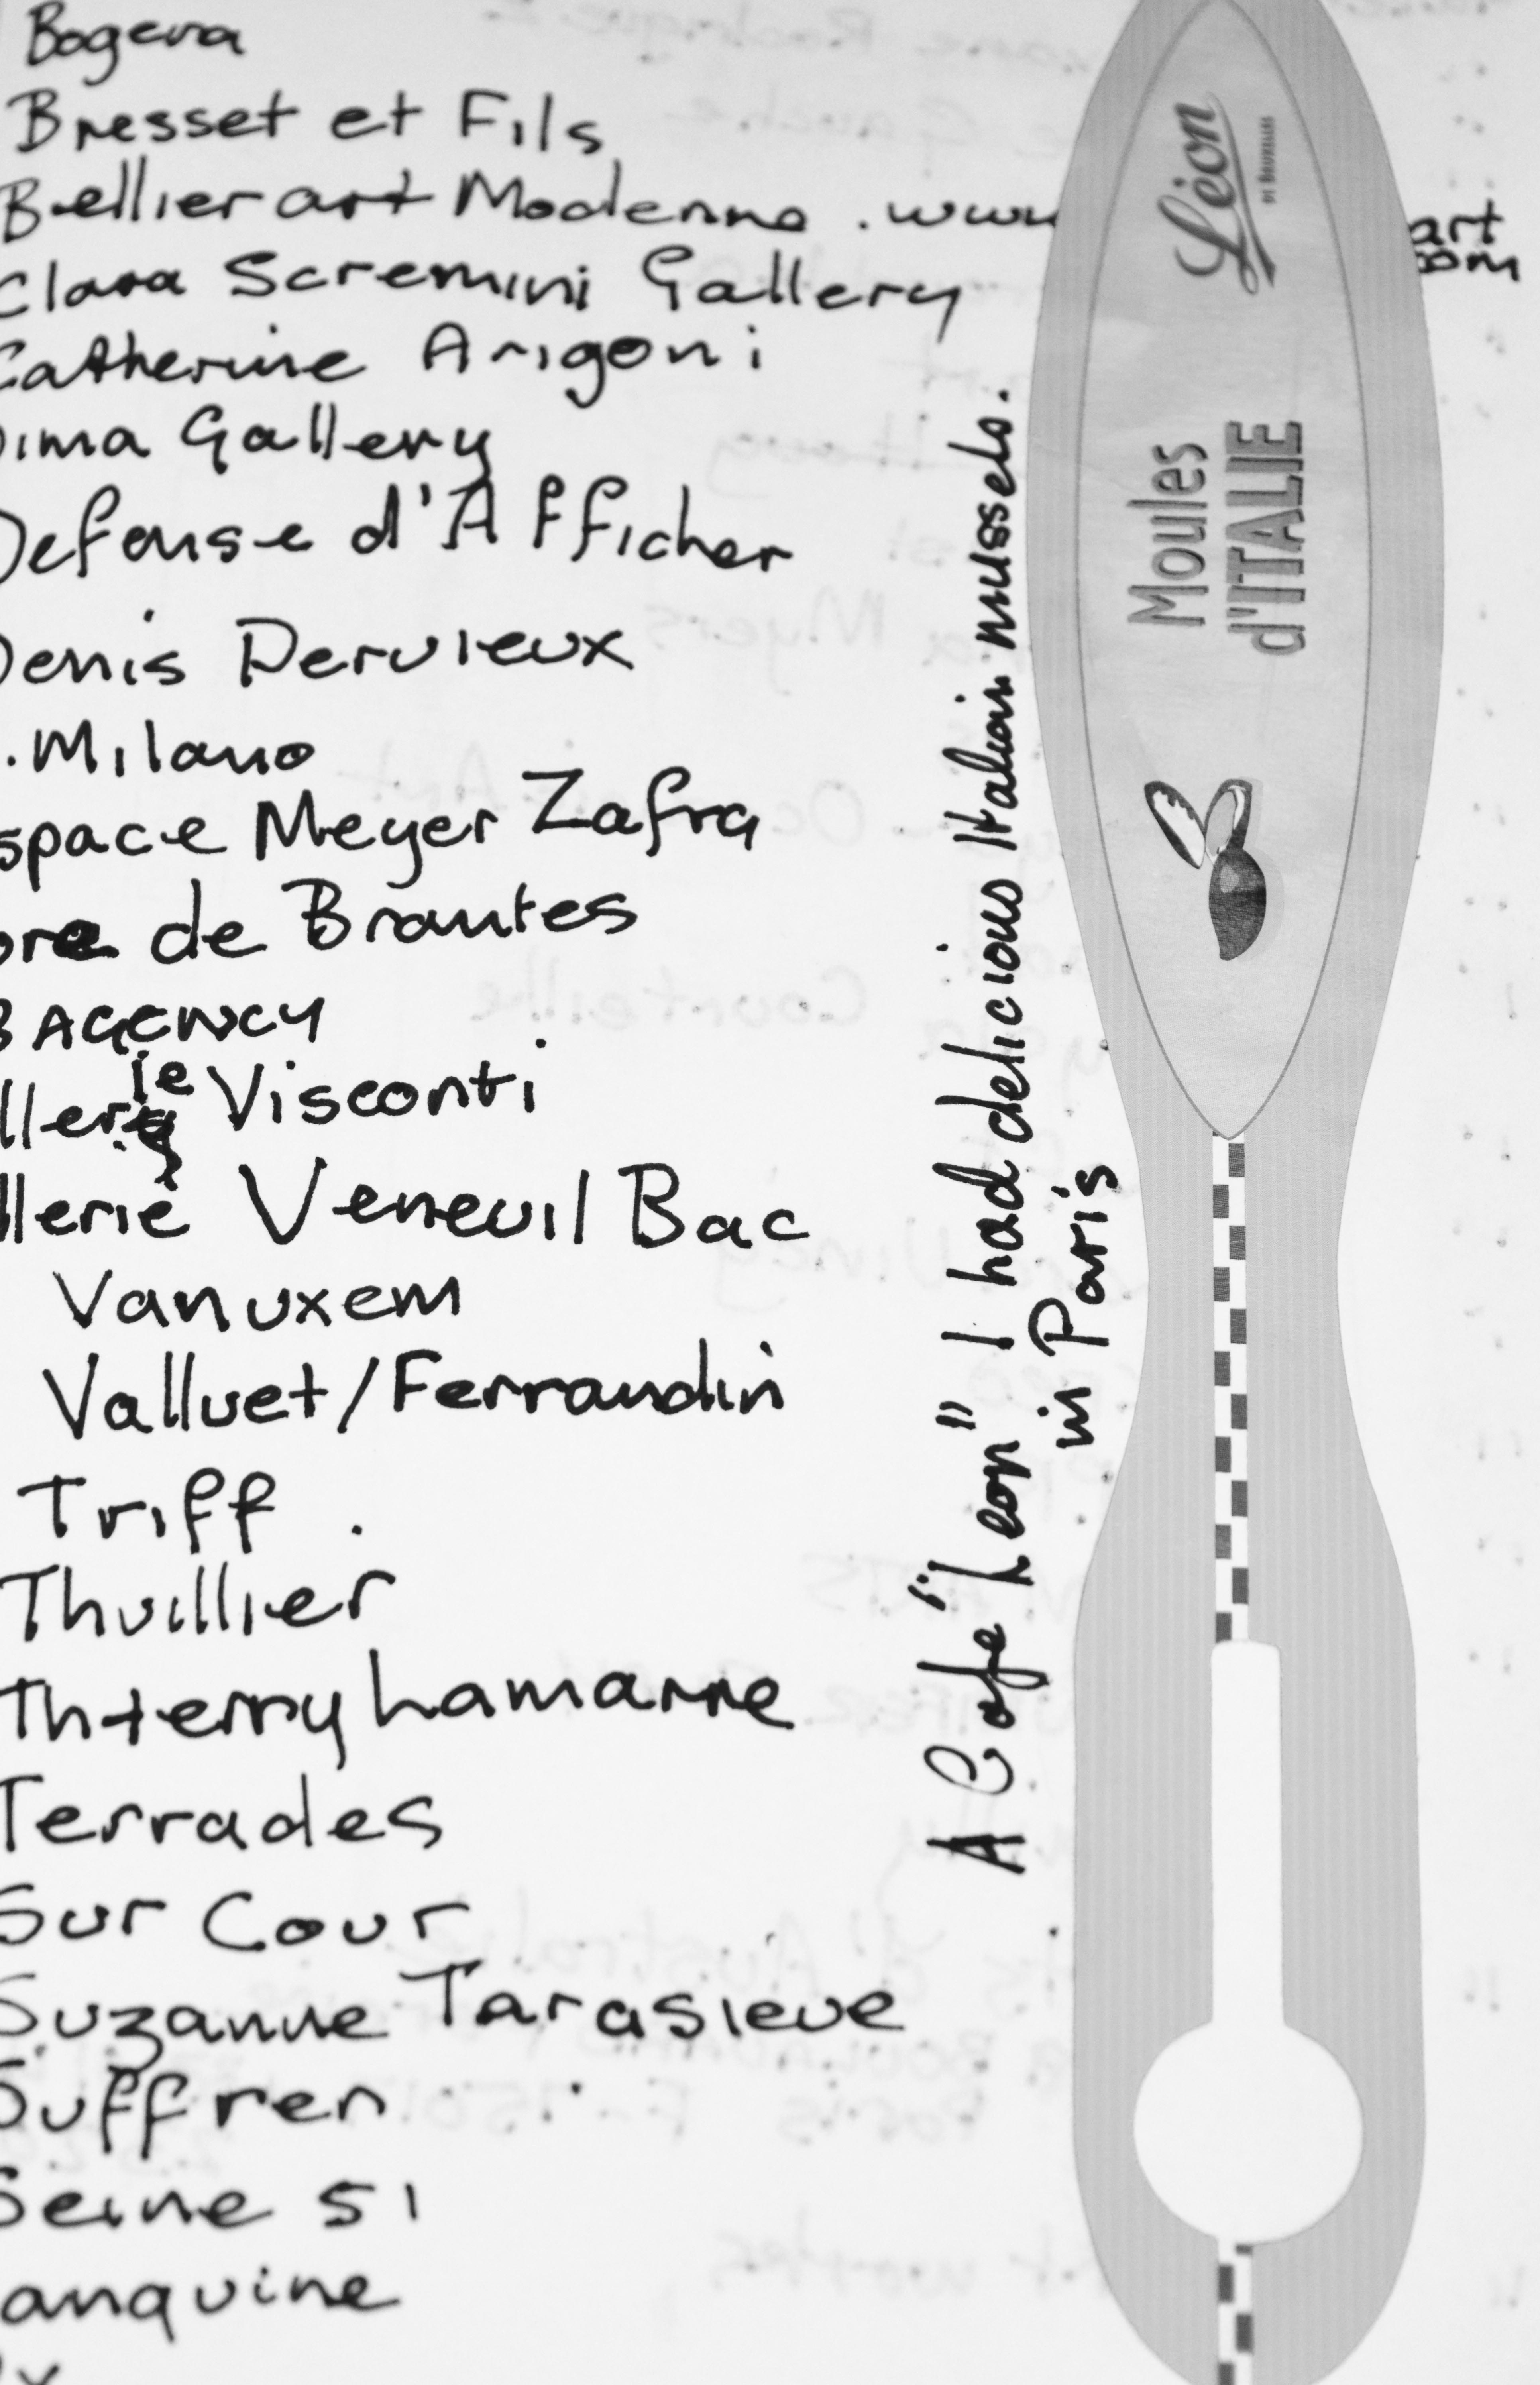 Bogena
Bresset et Fils
Bellier art Moderne . www
art
om
Clara Scremini Gallery
Catherine Arigoni
ima Gallery
Defense d'Afficher
Denis Dervieux
. Milano
space Meyer Zafra
ore de Brantes
B AGENCY
llerie Visconti
llerie Veneuil Bac
Vanuxem
Valluet/Ferrandin
Triff
Thuillier
Thierry Lamarre
Terrades
Sur Cour
Suzanne Tarasieve
Suffren
Seine 51
anquine
A Cafe "Leon" I had delicious Italian mussels.
in Paris
Léon
DE BRUXELLES
Moules
d'ITALIE